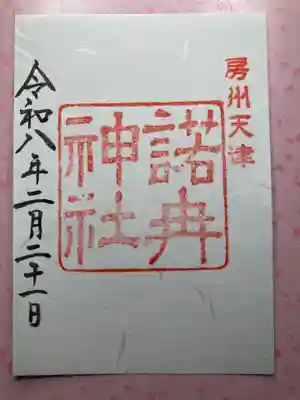 房州天津
諾冉
神社
令和八年二月二十一日